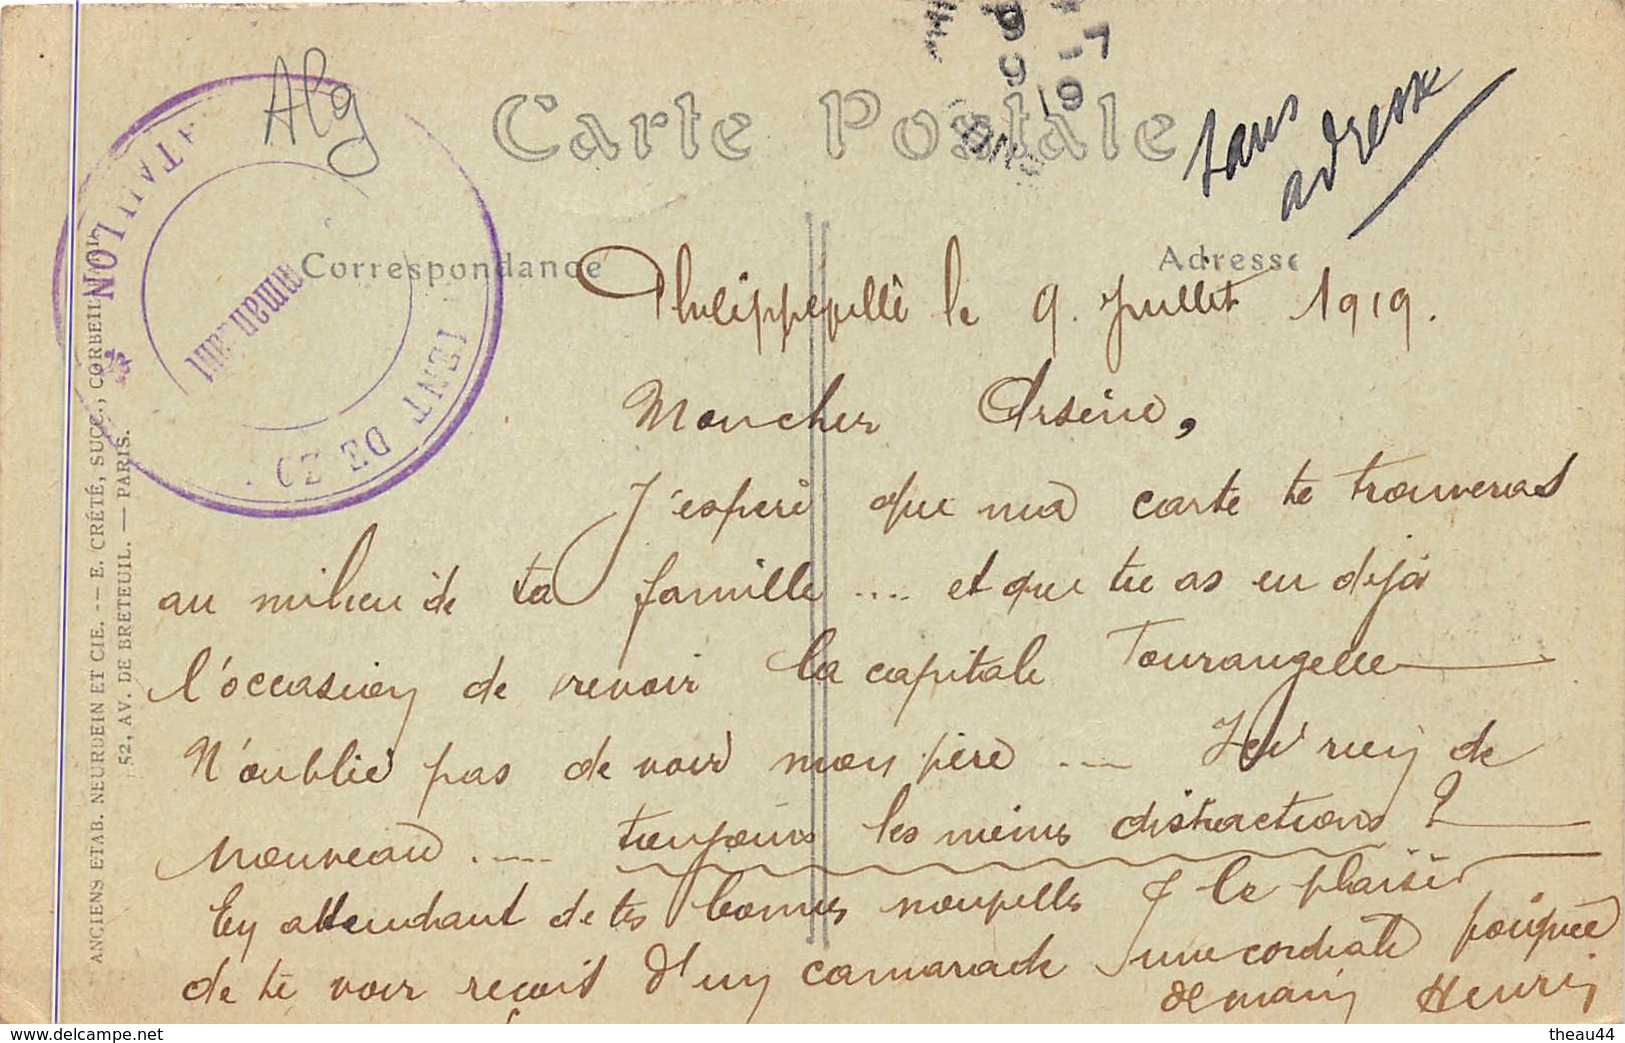 Alg
Carte Postale
sans
adresse
Correspondance
Adresse
Philippeville le 9. Juillet 1919.
Moncher Arsène,
J'espère que ma carte te trouveras
au milieu de ta famille .... et que tu as eu déjà
l'occasion de revoir la capitale Tourangelle
N'oublie pas de voir mon père .... Ici rien de
nouveau ..... toujours les mêmes distractions ?
En attendant de tes bonnes nouvelles & le plaisir
de te voir reçoit d'un camarade une cordiale poignée
de main Henri
ANCIENS ETAB. NEURDEIN ET CIE. -- E. CRÉTÉ, SUCC., CORBEIL
52, AV. DE BRETEUIL. — PARIS.
DE
theau44